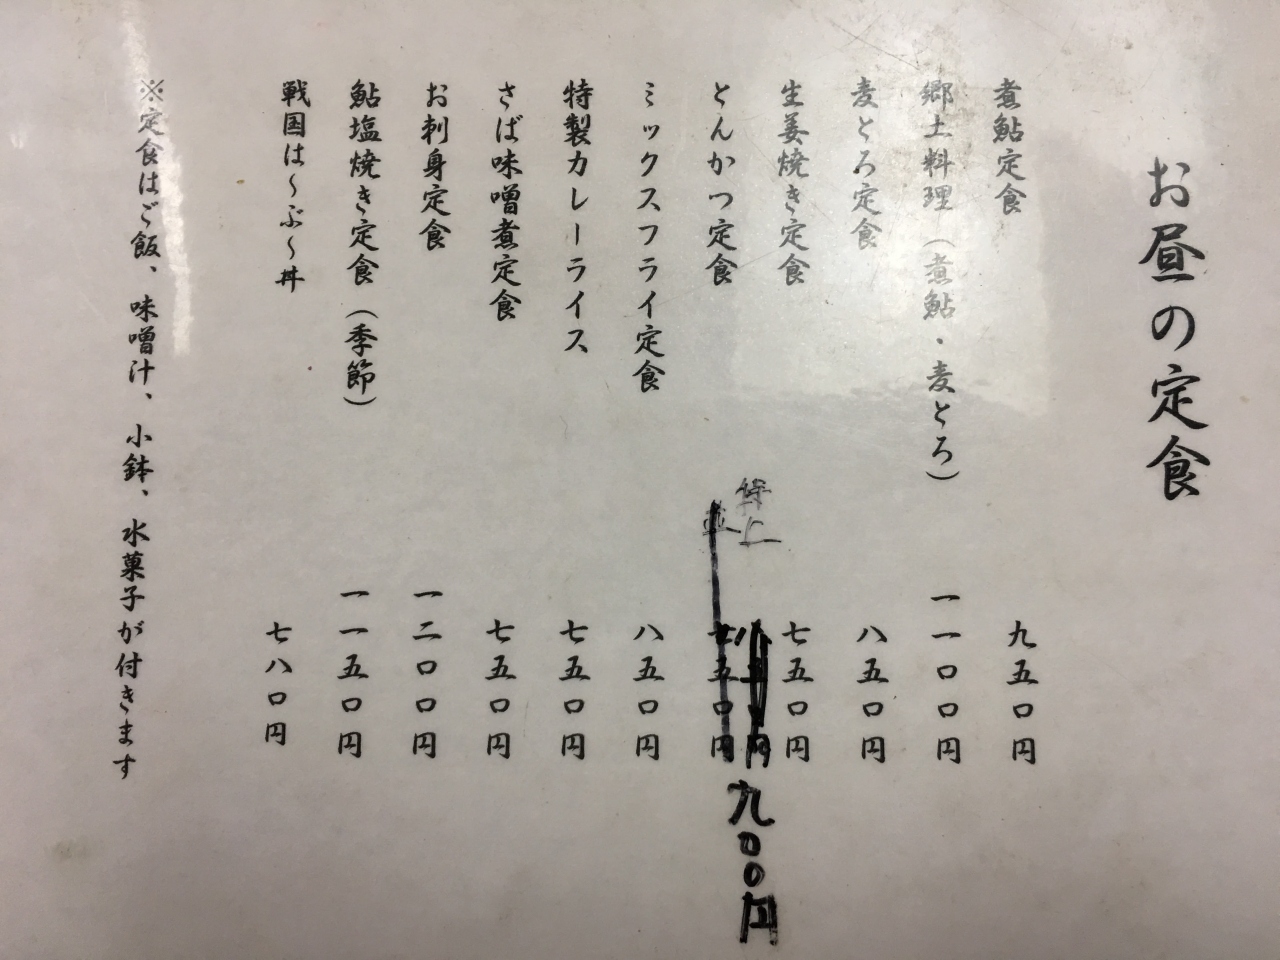 お昼の定食
煮鮎定食 九五〇円
郷土料理（煮鮎・麦とろ） 一一〇〇円
麦とろ定食 八五〇円
生姜焼き定食 七五〇円
とんかつ定食 特上 九〇〇円
並 七五〇円
ミックスフライ定食 八五〇円
特製カレーライス 七五〇円
さば味噌煮定食 七五〇円
お刺身定食 一二〇〇円
鮎塩焼き定食（季節） 一一五〇円
戦国は～ぶ～丼 七八〇円
※定食はご飯、味噌汁、小鉢、水菓子が付きます